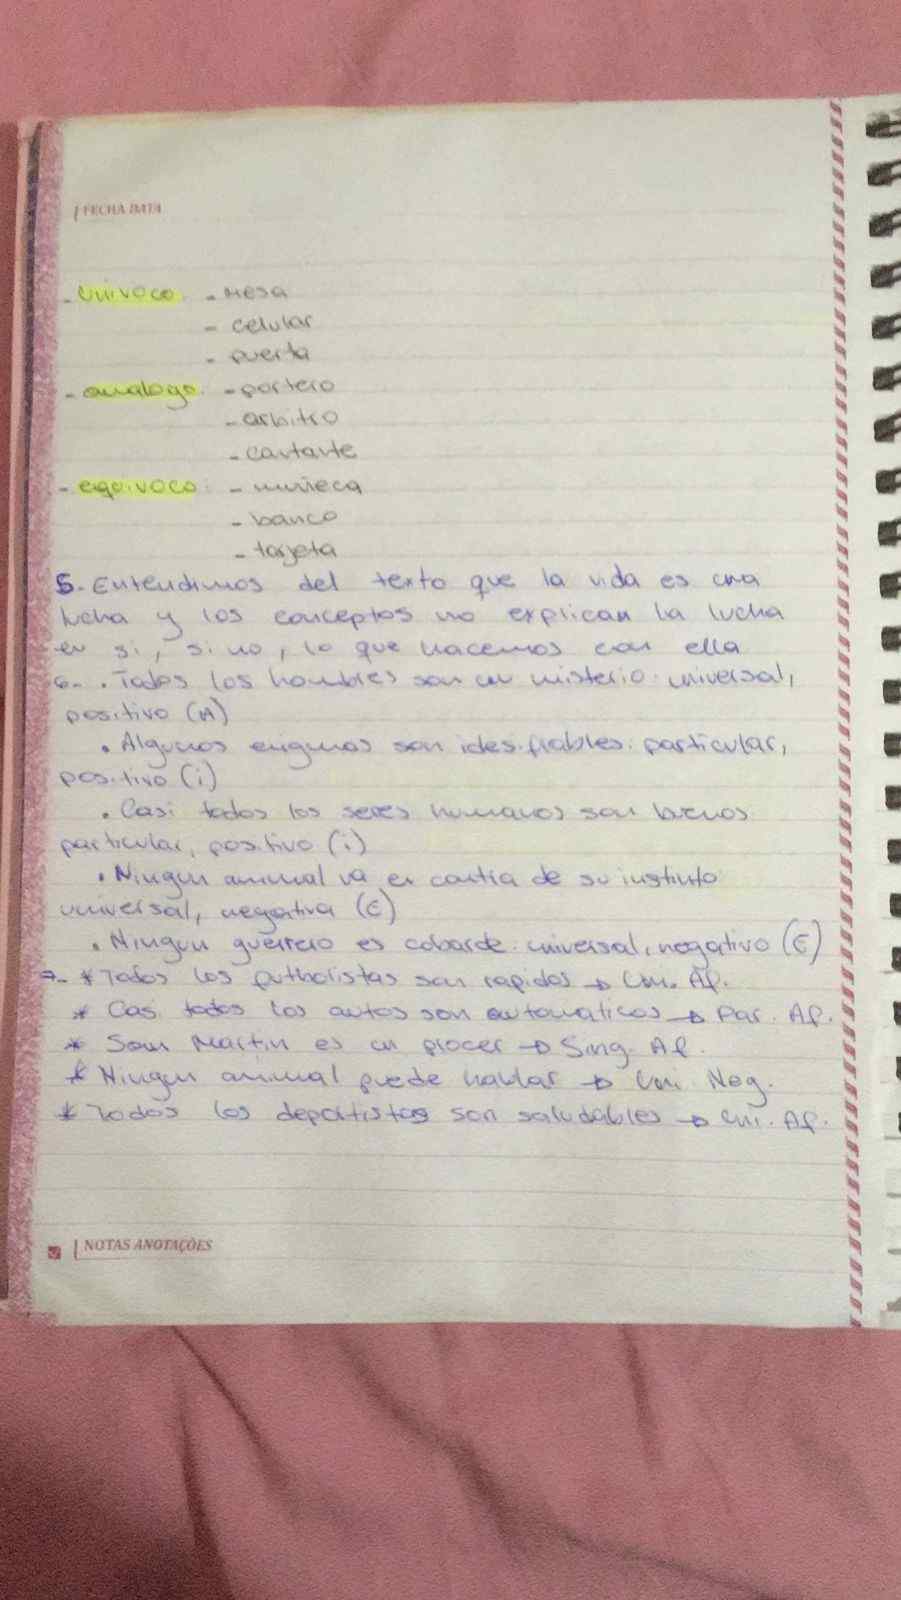 FECHA DATA
- Univoco: - Mesa
- celular
- puerta
- analogo: - portero
- arbitro
- cantante
- equivoco: - muñeca
- banco
- tarjeta
5- Entendimos del texto que la vida es una
lucha y los conceptos no explican la lucha
en si, si no, lo que hacemos con ella
6- . Todos los hombres son un misterio: universal,
positivo (A)
• Algunos enigmas son idesifrables: particular,
positivo (i)
• Casi todos los seres humanos son buenos
particular, positivo (i)
• Ningun animal va en contra de su instinto
universal, negativa (E)
• Ningun guerrero es cobarde: universal, negativo (E)
7- * Todos los futbolistas son rapidos → Uni. Af.
* Casi todos los autos son automaticos → Par. Af.
* San Martin es un procer → Sing. Af.
* Ningun animal puede hablar → Uni. Neg.
* Todos los deportistas son saludables → Uni. Af.
NOTAS ANOTAÇÕES